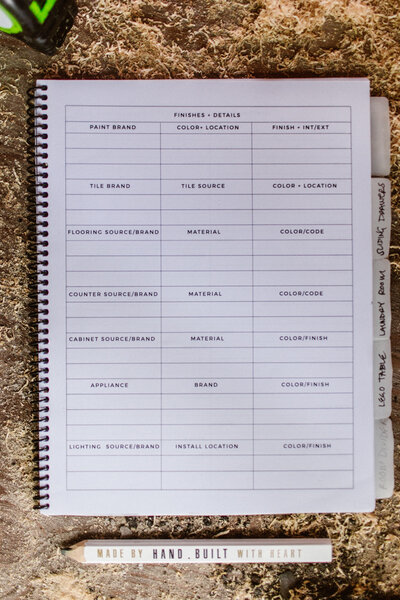 FINISHES + DETAILS
PAINT BRAND COLOR+ LOCATION FINISH + INT/EXT
TILE BRAND TILE SOURCE COLOR + LOCATION
FLOORING SOURCE/BRAND MATERIAL COLOR/CODE
COUNTER SOURCE/BRAND MATERIAL COLOR/CODE
CABINET SOURCE/BRAND MATERIAL COLOR/FINISH
APPLIANCE BRAND COLOR/FINISH
LIGHTING SOURCE/BRAND INSTALL LOCATION COLOR/FINISH
SLIDING DRAWERS
LAUNDRY ROOM
LEGO TABLE
MADE BY HAND.BUILT WITH HEART